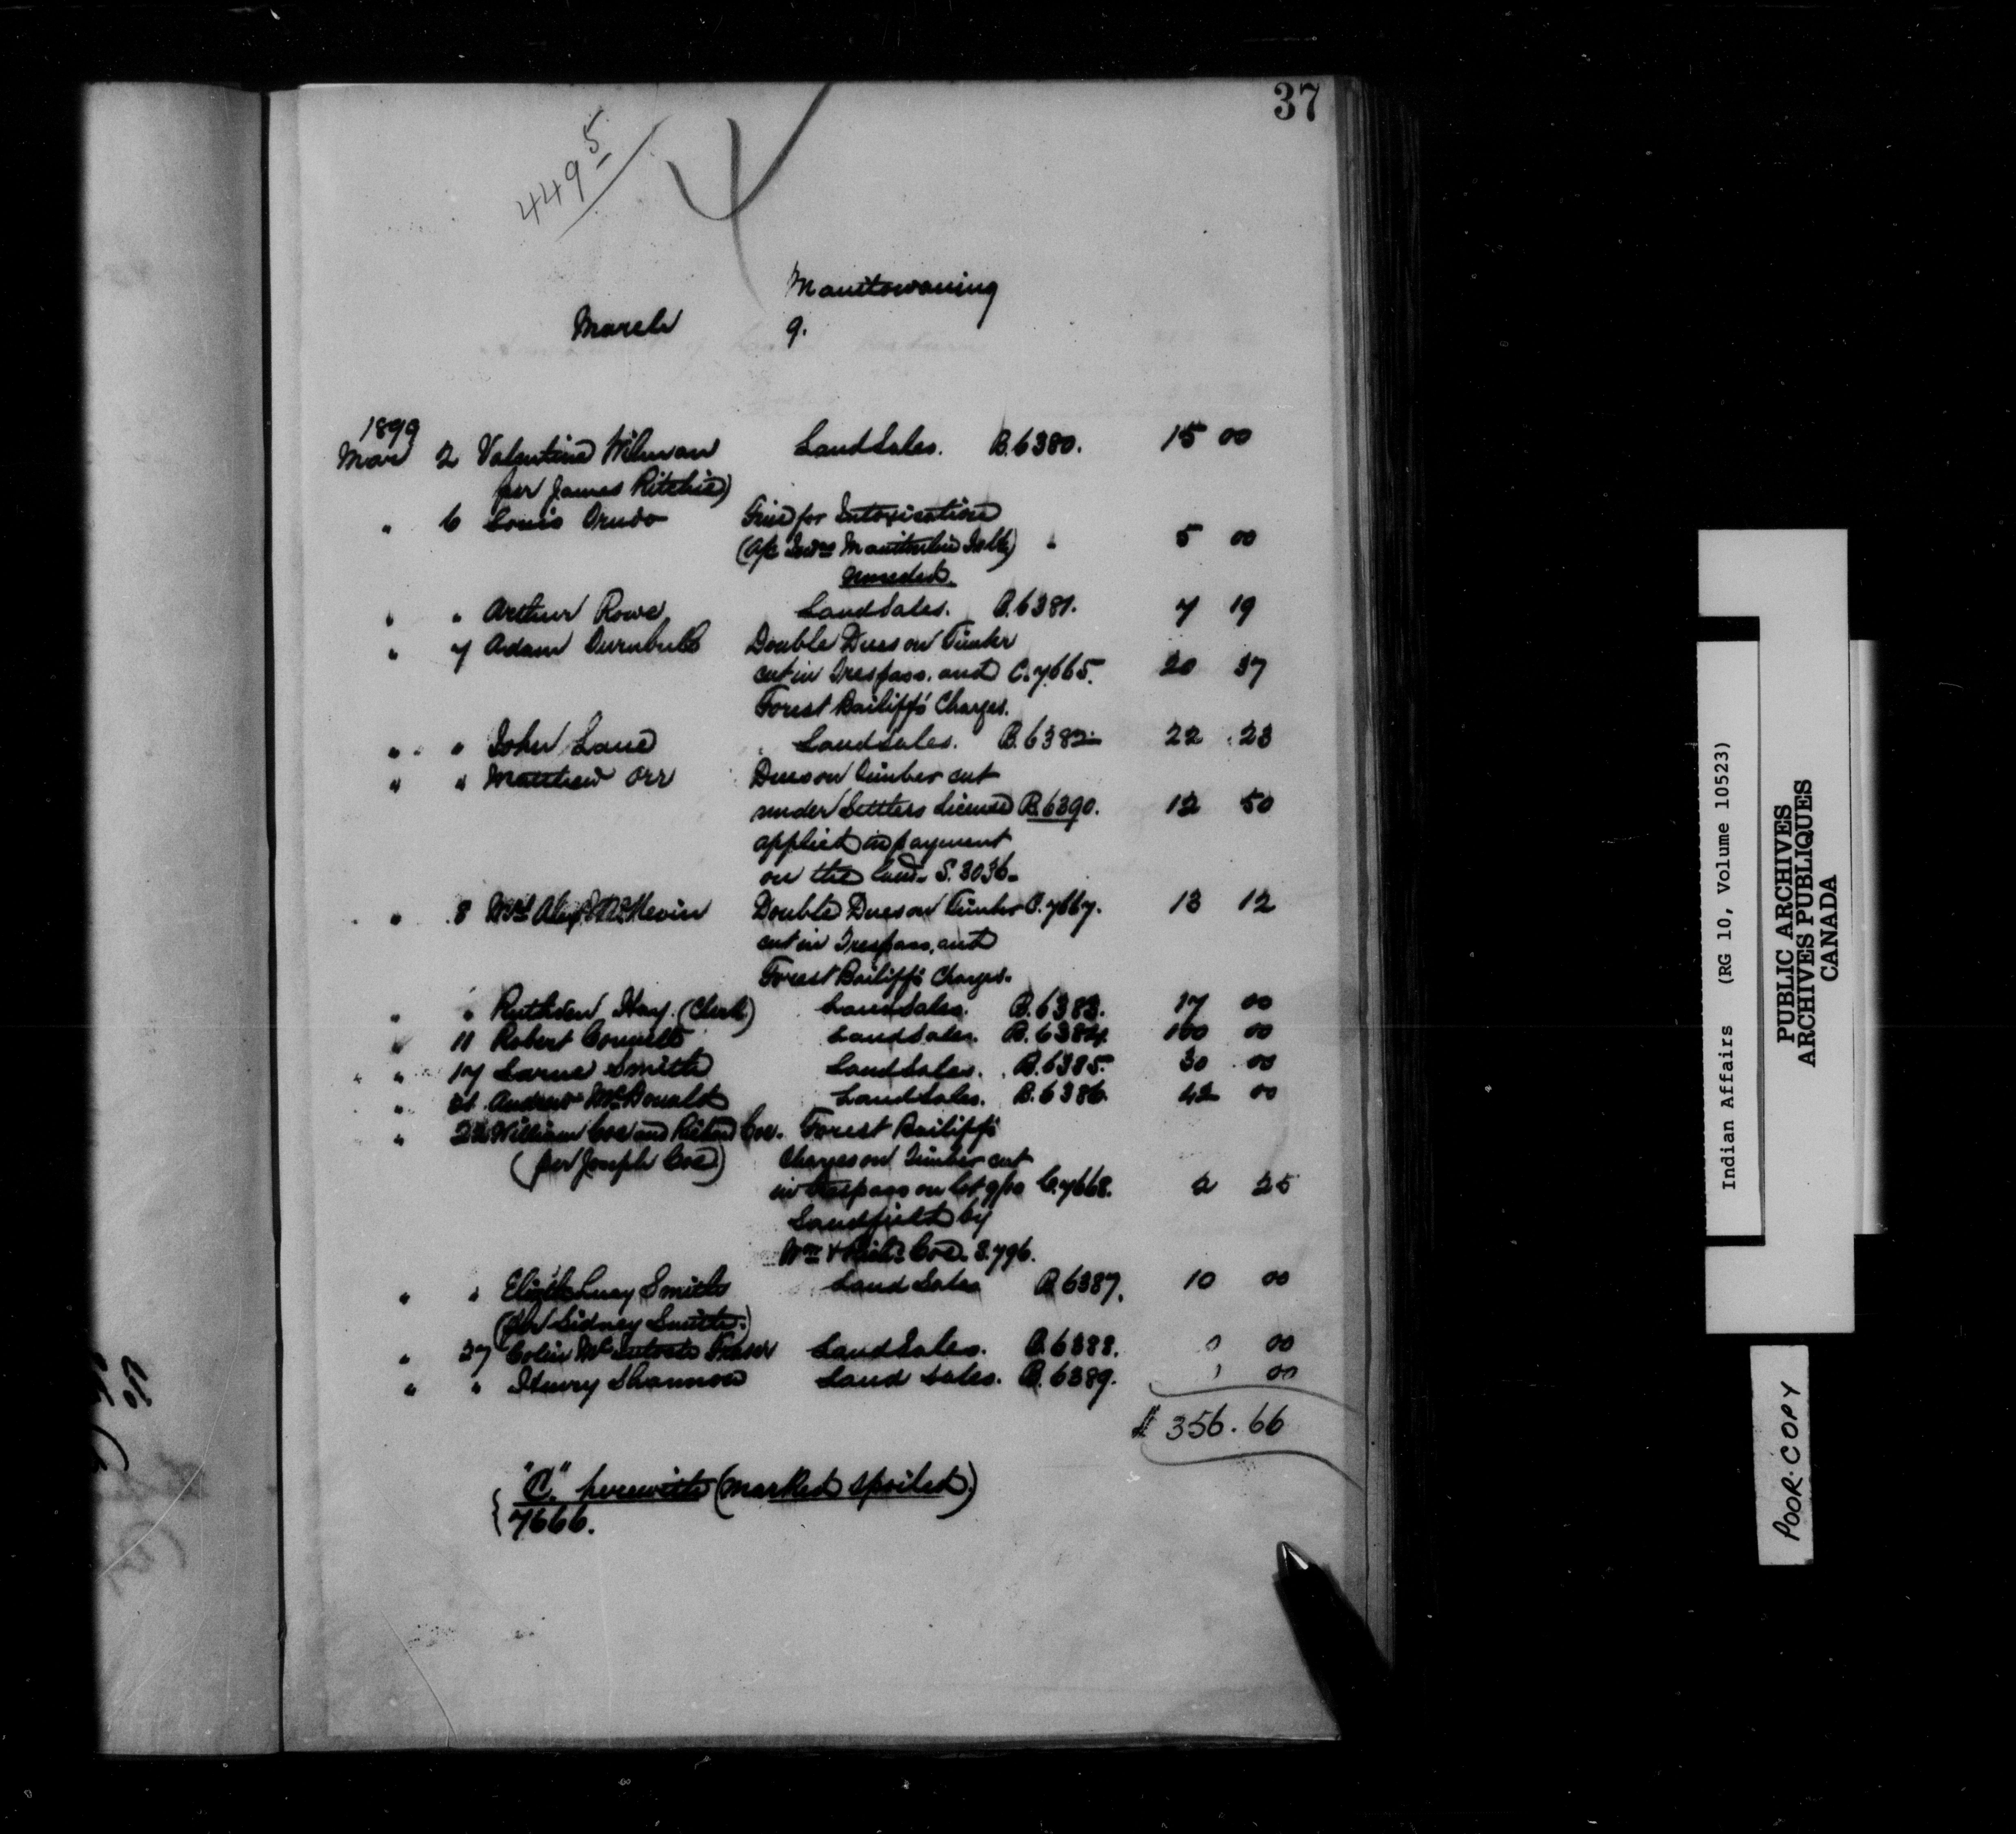 37
449 5
Manitowaning
March 9.
1899
Mar 2 Valentine Wilman Land Sales. B.6380. 15 00
(per James Ritchie)
" 6 Louis Fine for Intoxication
(a/c Manitoulin " 5 00
" " Arthur Rowe Land Sales. B.6381. 7 19
" 7 Adam Turnbull Double Dues on Timber
cut in Trespass. and C.7665. 20 37
Forest Bailiff's Charges.
" " John Lane Land Sales. B.6382. 22 23
" " Matthew Orr Dues on Timber cut
under Settlers License B.6390. 12 50
applied in payment
on the land. S. 3036.
" 8 Double Dues on Timber C.7667. 13 12
cut in Trespass, and
Forest Bailiff's Charges.
" " Ruthven Hay. (Clerk) Land Sales. B.6383. 17 00
" 11 Robert Land Sales. B.6384. 100 00
" 17 Smith Land Sales. B.6385. 30 00
" 21 Andrew McDonald Land Sales. B.6386. 42 00
" William Coe and Coe. Forest Bailiff's
(per Joseph Coe) Charges on Timber cut
in trespass on lot C.7668. 2 25
Sandfield by
Wm & Coe. S.796.
" " Lucy Smith Land Sales B 6387. 10 00
(per Sidney Smith.)
" 27 Colin McIntosh Fraser Land Sales. B.6388. 00
" " Henry Shannon Land Sales. B.6389. 00
$ 356.66
"C." herewith (marked spoiled.)
7666.
Indian Affairs (RG 10, Volume 10523)
PUBLIC ARCHIVES
ARCHIVES PUBLIQUES
CANADA
POOR COPY